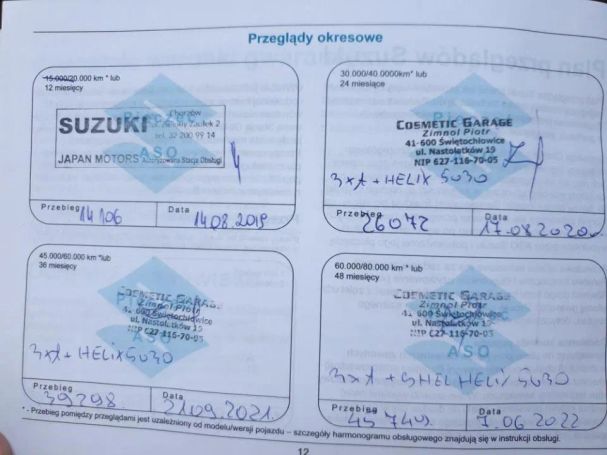 Przeglądy okresowe
15.000/20.000 km * lub
12 miesięcy
SUZUKI
Chorzów
tel. 32 200 99 14
JAPAN MOTORS Autoryzowana Stacja Obsługi
Przebieg 14106
Data 14.08.2019
30.000/40.0000km* lub
24 miesiące
COSMETIC GARAGE
Zimnol Piotr
41-600 Świętochłowice
ul. Nastolatków 19
NIP 627-116-70-05
3xA + HELIX 5W30
Przebieg 26072
Data 17.08.2020
45.000/60.000 km *lub
36 miesięcy
COSMETIC GARAGE
Zimnol Piotr
41-600 Świętochłowice
ul. Nastolatków 19
NIP 627-116-70-05
3xA + HELIX 5W30
Przebieg 39298
Data 21.09.2021.
60.000/80.000 km * lub
48 miesięcy
COSMETIC GARAGE
Zimnol Piotr
41-600 Świętochłowice
ul. Nastolatków 19
NIP 627-116-70-05
ASO
3xA + SHEL HELIX 5W30
Przebieg 45749
Data 7.06.2022
* - Przebieg pomiędzy przeglądami jest uzależniony od modelu/wersji pojazdu – szczegóły harmonogramu obsługowego znajdują się w instrukcji obsługi.
12